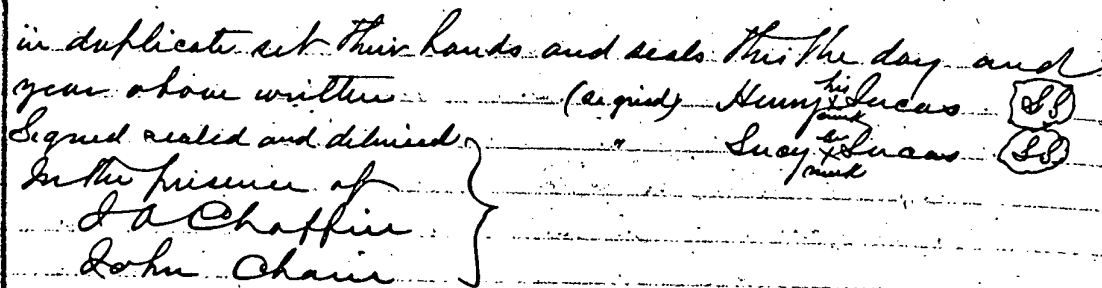 in duplicate set their hands and seals this the day and
year above written (signed) Henry his x mark Lucas SS
Signed sealed and delivered " Lucy her x mark Lucas SS
In the presence of
J A Chaffin
John Chain